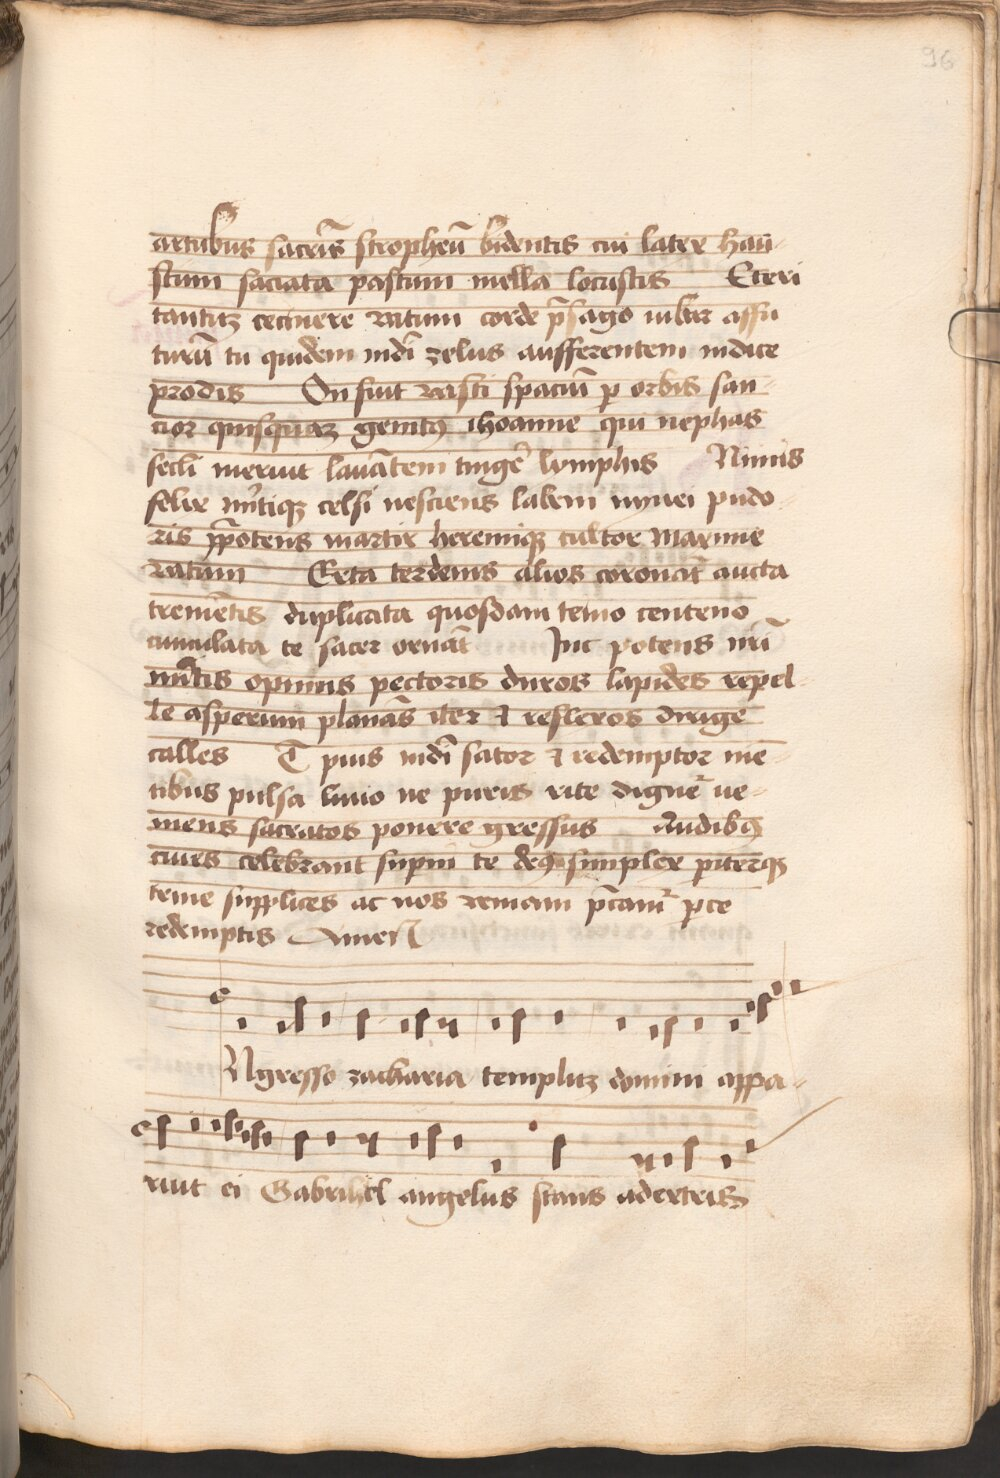 96
artubus sacris stropheū bidentis cui latex hau-
stum saciata pastum mella locustis Eteri
tantūz cecinere vatum corde p̄sago iubar affu
turū tu quidem mūdi zelus aufferentem indice
prodis On fuit vasti spaciū p orbis san-
ctior quisquaz genitꝰ ihoanne qui nephas
secli meruit lavātem tinge᷑ lymphis Nimis
felix m᷑itiqꝫ celsi nesciens labem nyuei pudo-
ris p̄potens martir heremiqꝫ cultor Maxime
vatum Erta terdenis alios coronāt aucta
cremētis duplicata quosdam teruo centeno
cumulata te sacer ornāt Inc potens nr̄i
m᷑itis opimis pectoris duros lapides repel-
le asperum planās iter ⁊ reflexos dirige
calles T pius mūdi sator ⁊ redemptor mē-
tibus pulsa liuio ne puris rite digne᷑ ue-
niens sacratos ponere gressus Audibꝰ
ciues celebrant sup̄ni te deꝰ simplex pit᷑erqꝫ
terne supplices ac nos veniam p̄cam᷑ p̄ce
redemptis Amen
Ngresso zacharia templūz domini appa-
ruit ei Gabrihel angelus stans adextris